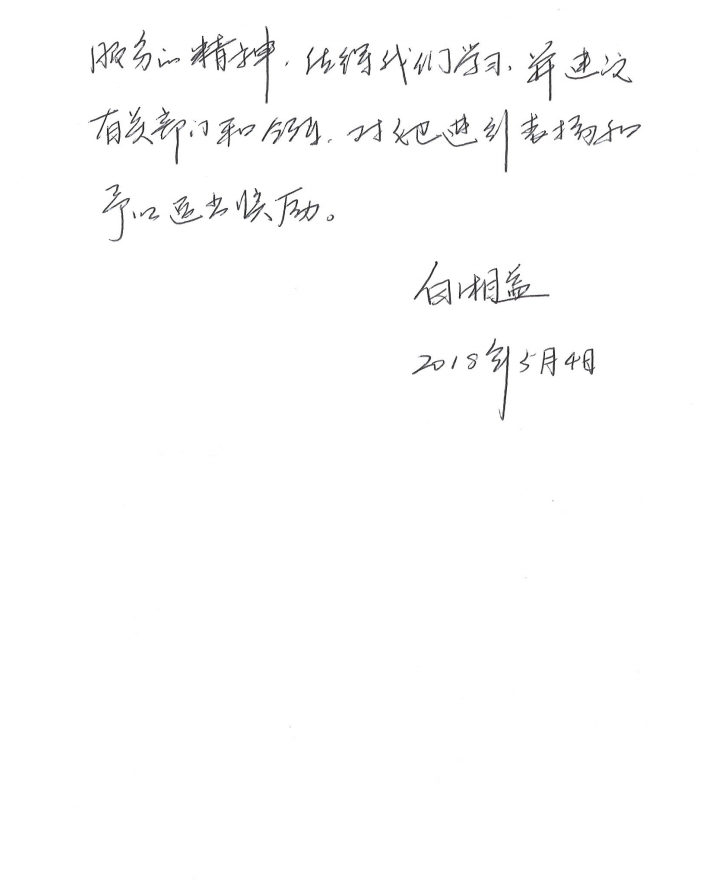 服务的精神，值得我们学习，并建议
有关部门和领导，对他进行表扬和
予以适当奖励。
白湘益
2018年5月4日